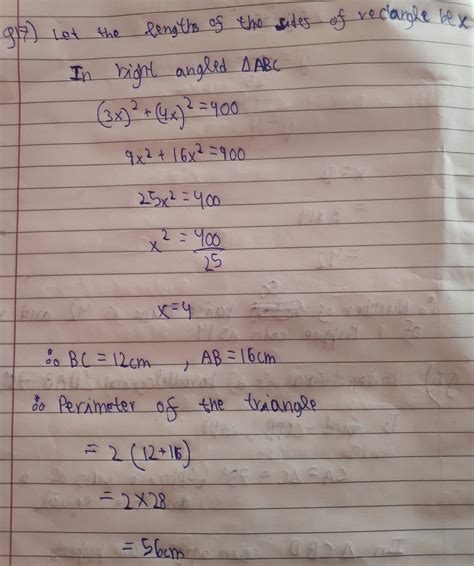 Q17) Let the lengths of the sides of rectangle be x
In right angled ΔABC
(3x)² + (4x)² = 400
9x² + 16x² = 400
25x² = 400
x² = 400/25
x = 4
∴ BC = 12cm , AB = 16cm
∴ Perimeter of the triangle
= 2 (12+16)
= 2 × 28
= 56cm